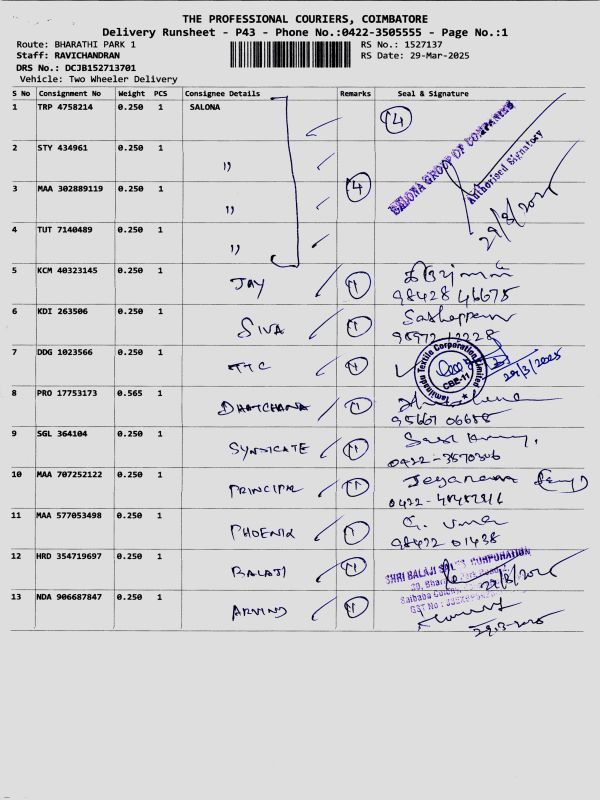 THE PROFESSIONAL COURIERS, COIMBATORE
Delivery Runsheet - P43 - Phone No.:0422-3505555 - Page No.:1
Route: BHARATHI PARK 1 RS No.: 1527137
Staff: RAVICHANDRAN RS Date: 29-Mar-2025
DRS No.: DCJB152713701
Vehicle: Two Wheeler Delivery
S No Consignment No Weight PCS Consignee Details Remarks Seal & Signature
1 TRP 4758214 0.250 1 SALONA 4
SALONA GROUP OF COMPANIES
Authorised Signatory
2 STY 434961 0.250 1 ,,
3 MAA 302889119 0.250 1 ,, 4
4 TUT 7140489 0.250 1 ,,
5 KCM 40323145 0.250 1 JAY 1
98428 46675
6 KDI 263506 0.250 1 SIVA 1
7 DDG 1023566 0.250 1 TTC 1
Tamilnadu Textile Corporation Limited CBE-11 29/3/2025
8 PRO 17753173 0.565 1 1
06658
9 SGL 364104 0.250 1 SYNDICATE 1
0422-3570306
10 MAA 707252122 0.250 1 PRINCIPAL 1
0422-
11 MAA 577053498 0.250 1 PHOENIX 1
G. Uma
98422 01438
12 HRD 354719697 0.250 1 BALAJI 1
SHRI BALAJI CORPORATION
Saibaba Colony
GST No :
13 NDA 906687847 0.250 1 ARVIND 1
29.3-2025